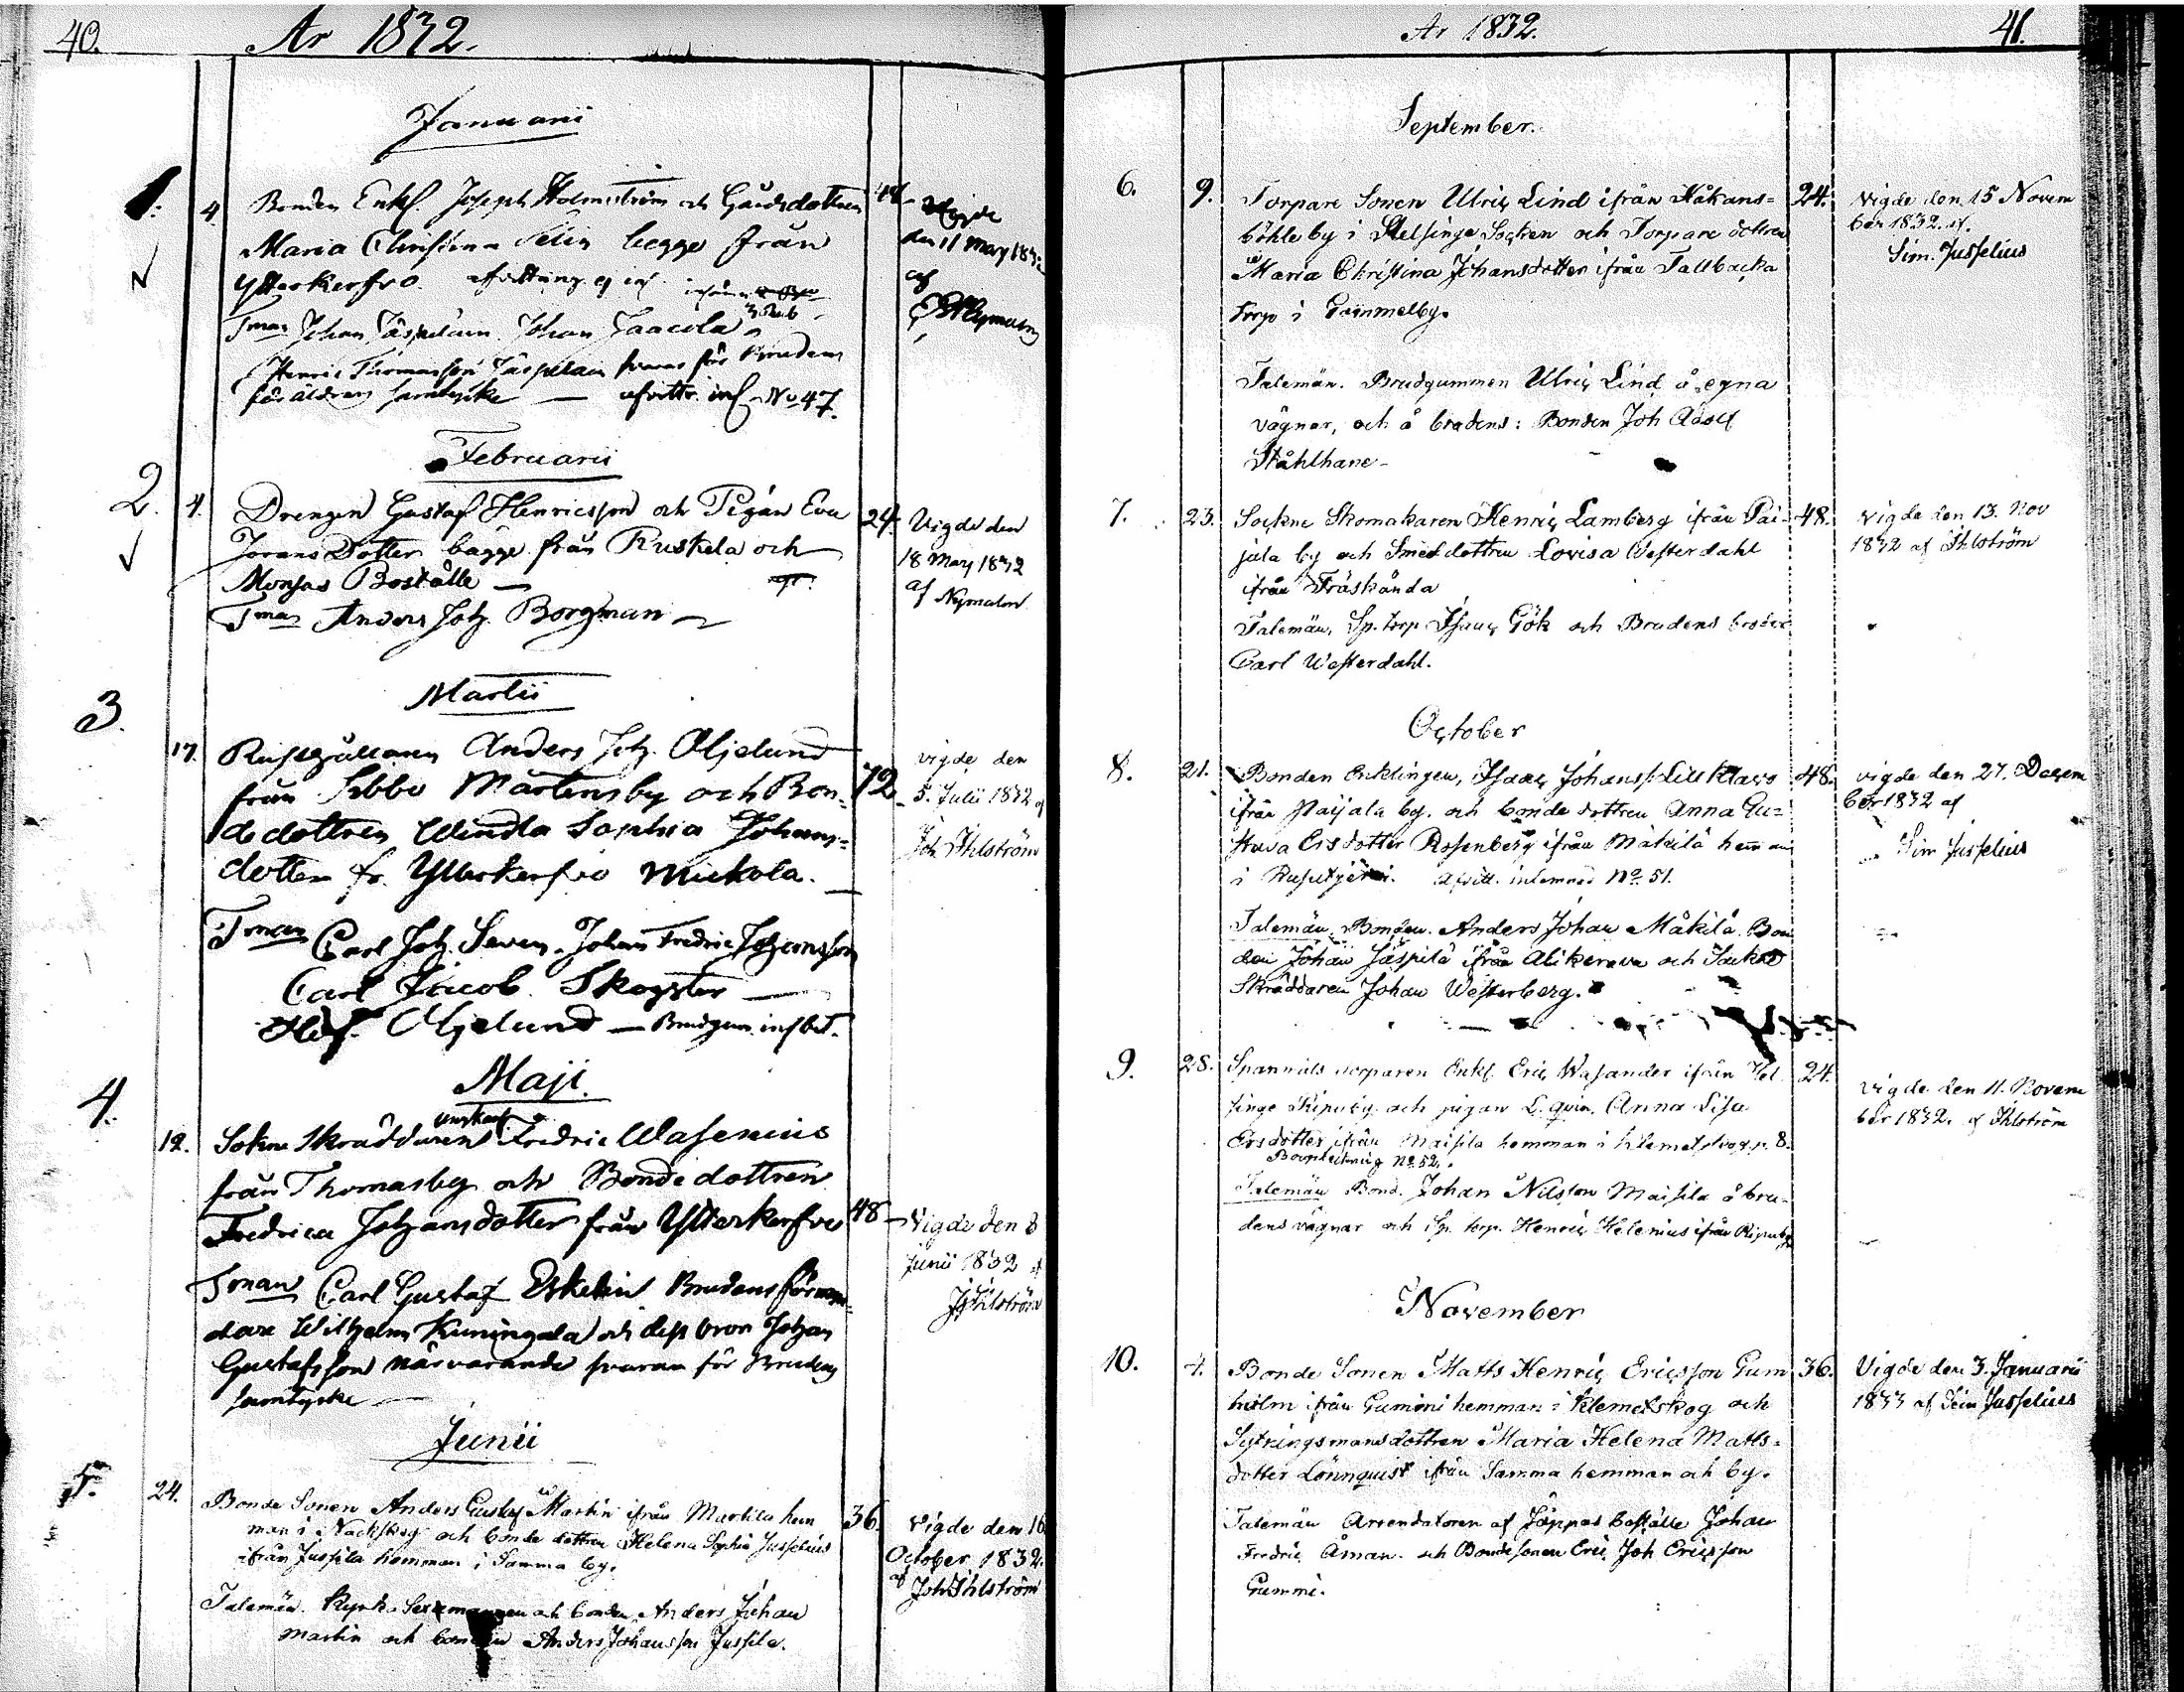 40. År 1832.
Januarii
1. 4. Bonden Enkl. Joseph Holmström och Gårdsdottren 48
Maria Christina Selin begge från
Ytterkerfvo. afvittring ej inf.
Tman Johan Jäspilain Johan Jaacola
Henric Thomasson Jäspilain svarar för Brudens
föräldrars samtycke — afvittr. inl. No 47.
Vigde
den 11 May 1832
af
Februarii
2. 4. Drengen Gustaf Henricsson och Pigan Eva 24.
Jorans Dotter bägge från Ruskela och
Monsas Boställe —
Tman Anders Joh. Borgman —
Vigde den
18 May 1832
af Nymalm
Martii
3. 17. Rusthållaren Anders Joh. Öljelund 72
från Sibbo Mårtensby och Bon-
de dottren Wendla Sophia Johans-
dotter fr. Ytterkerfvo Mickola. —
Tman Carl Joh. Seven. Johan Fredric Johansson
Carl Jacob Skogster —
Öljelund — Brudgum. inf bet.
vigde den
5. Julii 1832 af
Joh Ihlström
Maji.
4. 12. Sokne Skräddaren Fredric Wasenius
från Thomasby och Bonde dottren
Fredrica Johansdotter från Ytterkerfvo 48
Tman Carl Gustaf Eskelin Brudens förmyn-
dare Wilhelm Kuningala och dess bror Johan
Gustafsson närvarande svarar för Brudens
samtycke —
Vigde den 8
Junii 1832 af
J Ihlström
Junii
5. 24. Bonde Sonen Anders Gustaf Martin ifrån Martila hem 36.
man i Nacksby och bonde dottren Helena Sophia Jusselius
ifrån Jussila hemman i Samma by.
Talemän. Kyrko Sexmannen och bonden Anders Johan
Martin och bonden Anders Johansson Jussila.
Vigde den 16
October 1832.
af Joh Ihlström
År 1832. 41.
September.
6. 9. Torpare Sonen Ulric Lind ifrån Håkans- 24.
böhle by i Helsinge Socken och Torpare dottren
Maria Christina Johansdotter ifrån Tallbacka
torp i Gammelby.
Talemän. Brudgummen Ulric Lind å egna
vägnar, och å brudens: Bonden Joh Adolf
Ståhlhane-
vigde den 15 Novem
ber 1832. af.
Sim. Jusselius
7. 23. Sockne Skomakaren Henric Lamberg ifrån Pai- 48.
jala by och Smeddottren Lovisa Westerdahl
ifrån Träskända
Talemän, Sp. torp. Isaac Gök och Brudens broder
Carl Westerdahl.
vigde den 13. Nov
1832 af Ihlström
October
8. 21. Bonden Enklingen, Isaac Johanss. 48.
ifrån Paijala by. och bonde dottren Anna Gu-
stava Ersdotter Rosenberg ifrån Mäkilä hemman
i Afvitt. inlemnad No 51.
Talemän, Bonden. Anders Johan Mäkilä. Bon
den Johan Jäspilä ifrån Alikerava och Sockne
Skräddaren Johan Westerberg.
vigde den 27. Decem
ber 1832 af
Sim Jusselius
9. 28. Spannmåls torparen Enkl. Eric Wasander ifrån Hel 24.
singe och pigan L. qvin. Anna Lisa
Ersdotter ifrån Maisila hemman i Klemetskog p. 8.
No 52.
Talemän Bond. Johan Nilsson Maisila å bru-
dens vägnar och Sp. torp. Henric Helenius ifrån Ripuby
vigde den 11. Novem
ber 1832. af Ihlström
November
10. 4. Bonde Sonen Matts Henric Ericsson Gum 36.
holm ifrån Gummi hemman i Klemetskog och
Sytningsmansdottren Maria Helena Matts-
dotter Lönnquist ifrån Samma hemman och by.
Talemän Arrendatoren af Jäppas boställe Johan
Fredric Åman. och Bonde sonen Eric Joh Ericsson
Gummi.
Vigde den 3. Januarii
1833 af Sim Jusselius